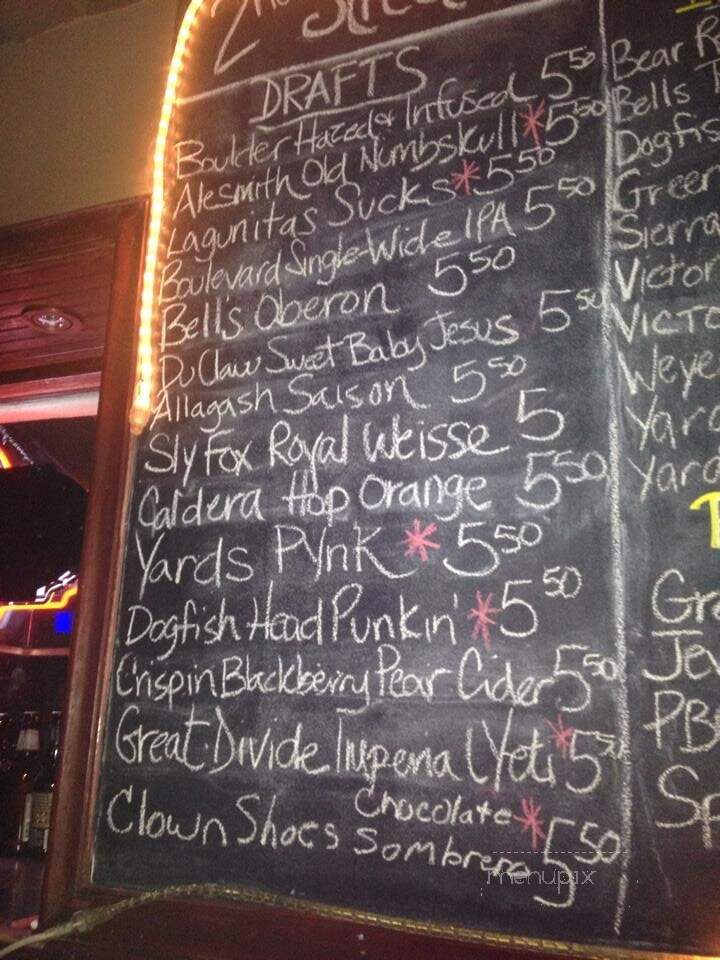 2nd Street
DRAFTS
Boulder Hazed & Infused 5 50
Alesmith Old Numbskull * 5 50
Lagunitas Sucks * 5 50
Boulevard Single-Wide IPA 5 50
Bell's Oberon 5 50
DuClaw Sweet Baby Jesus 5 50
Allagash Saison 5 50
Sly Fox Royal Weisse 5
Caldera Hop Orange 5 50
Yards PYnK * 5 50
Dogfish Head Punkin' * 5 50
Crispin Blackberry Pear Cider 5 50
Great Divide Imperial Yeti * 5 50
Clown Shoes Chocolate Sombrero * 5 50
Bear R
Bells T
Dogfis
Green
Sierra
Victor
Victo
Weye
Yard
Yard
Gr
Je
PB
Sp
menupix